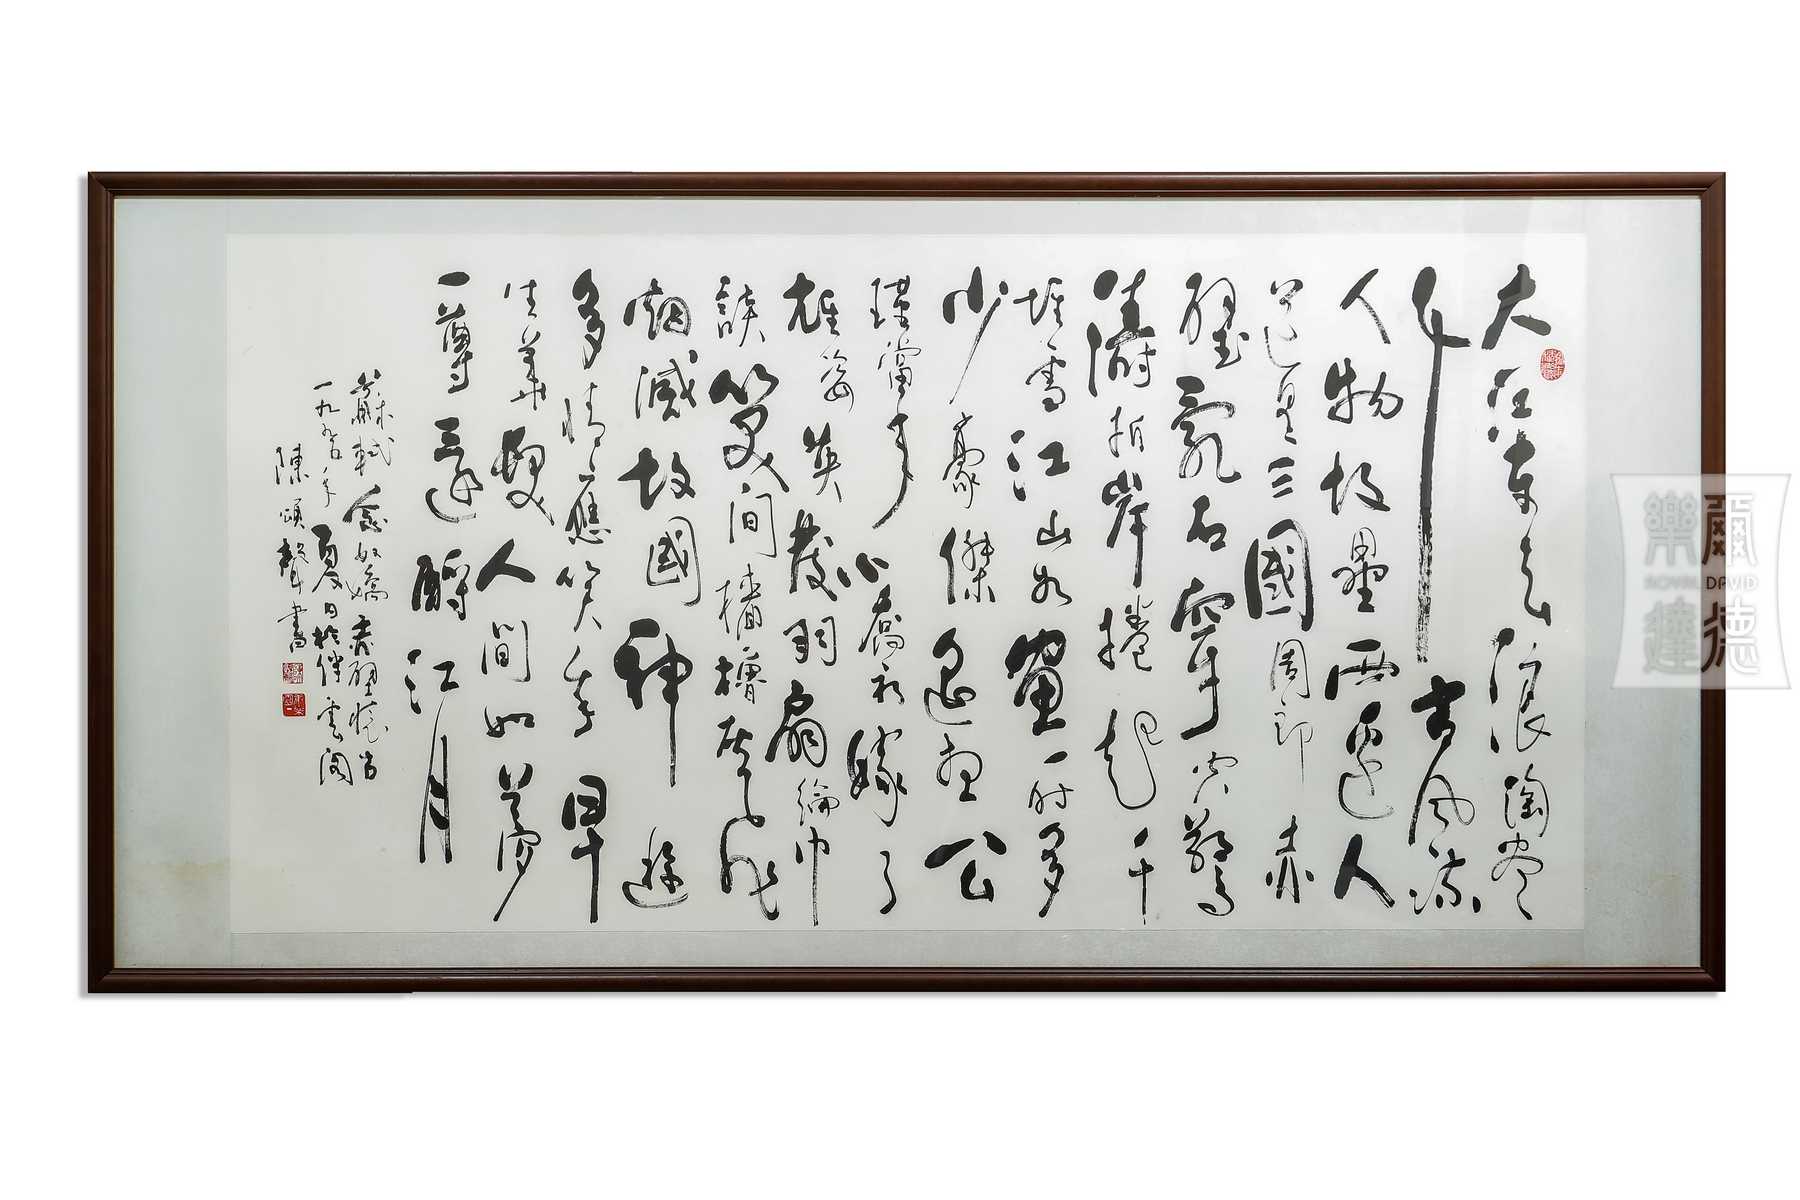 大江東去浪淘盡
千古風流
人物故壘西邊人
道是三國周郎赤
壁亂石穿空驚
濤拍岸捲起千
堆雪江山如畫一時多
少豪傑遙想公
瑾當年小喬初嫁了
雄姿英發羽扇綸巾
談笑間檣櫓灰飛
烟滅故國神遊
多情應笑我早
生華髮人間如夢
一尊還酹江月
蘇軾念奴嬌赤壁懷古
一九九五年夏日於伴雲閣
陳頌聲書
樂爾
ROYAL DAVID
達德